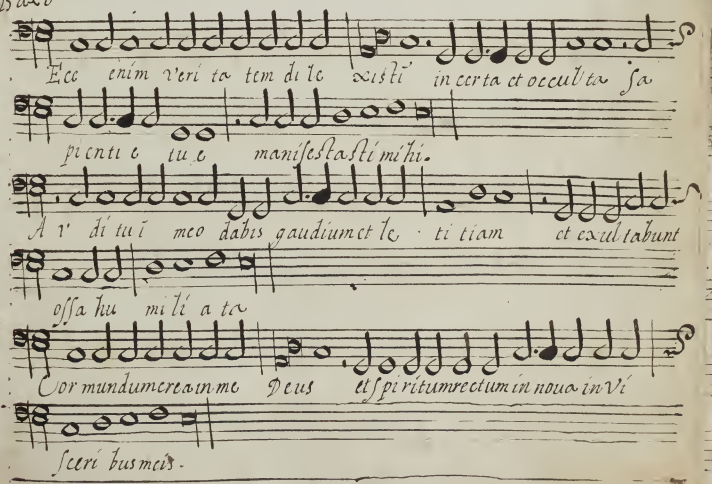 Ecce enim veri ta tem di le xisti in certa et occul ta sa
pi enti e tu e manifestasti mi hi.
A v di tu i meo dabis gaudium et le ti tiam et exul tabunt
ossa hu mi li a ta
Cor mundum crea in me Deus et spiritum rectum in noua in vi
sceri bus meis.